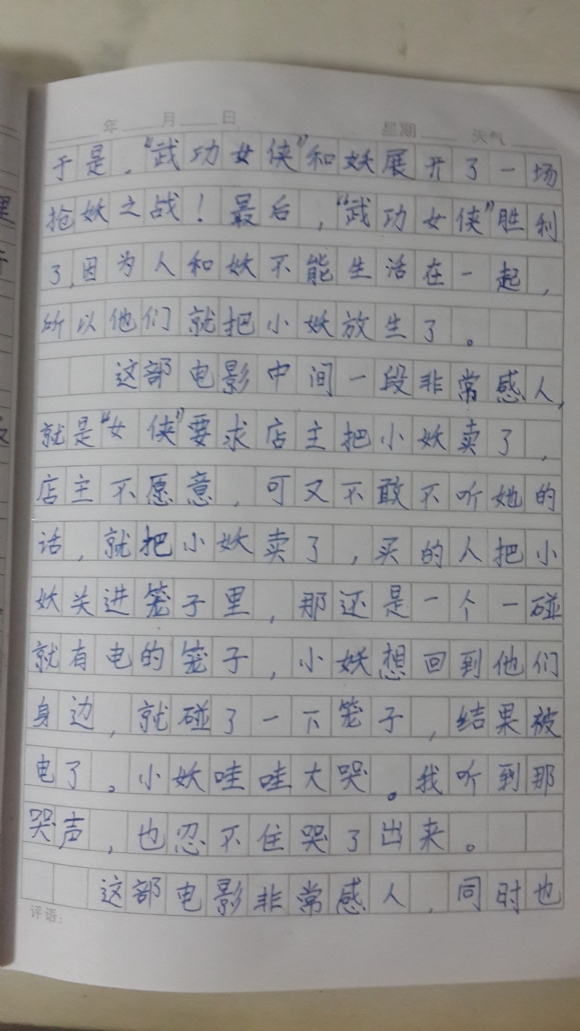 年 月 日 星期 天气
于是。“武功女侠”和妖展开了一场
抢妖之战！最后，“武功女侠”胜利
了,因为人和妖不能生活在一起，
所以他们就把小妖放生了。
这部电影中间一段非常感人，
就是“女侠”要求店主把小妖卖了，
店主不愿意，可又不敢不听她的
话，就把小妖卖了，买的人把小
妖关进笼子里，那还是一个一碰
就有电的笼子，小妖想回到他们
身边，就碰了一下笼子，结果被
电了。小妖哇哇大哭。我听到那
哭声，也忍不住哭了出来。
这部电影非常感人，同时也
评语：